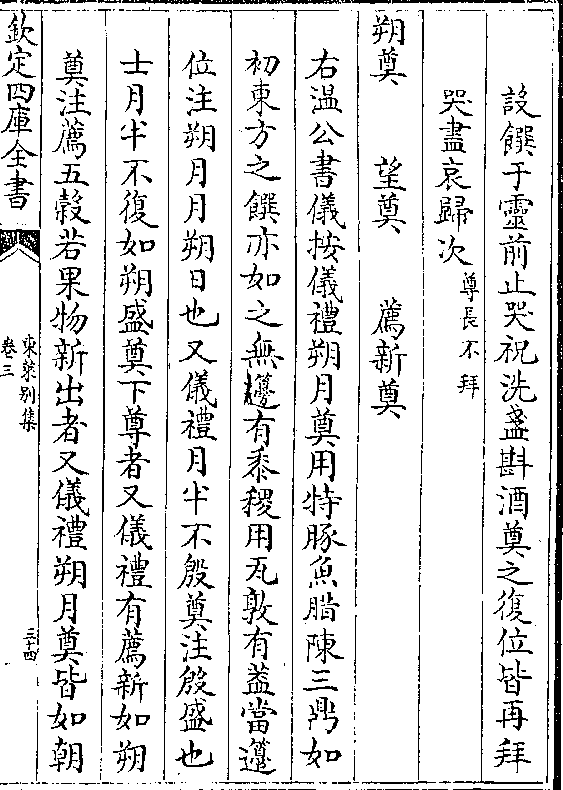 設饌于靈前止哭祝洗盞斟酒奠之復位皆再拜
哭盡哀歸次尊長不拜
朔奠　望奠　薦新奠
右温公書儀按儀禮朔月奠用特豚魚腊陳三鼎如
初東方之饌亦如之無籩有黍稷用瓦敦有蓋當籩
位注朔月月朔日也又儀禮月半不殷奠注殷盛也
士月半不復如朔盛奠下尊者又儀禮有薦新如朔
奠注薦五穀若果物新出者又儀禮朔月奠皆如朝
欽定四庫全書
東萊别集
卷三
三十四